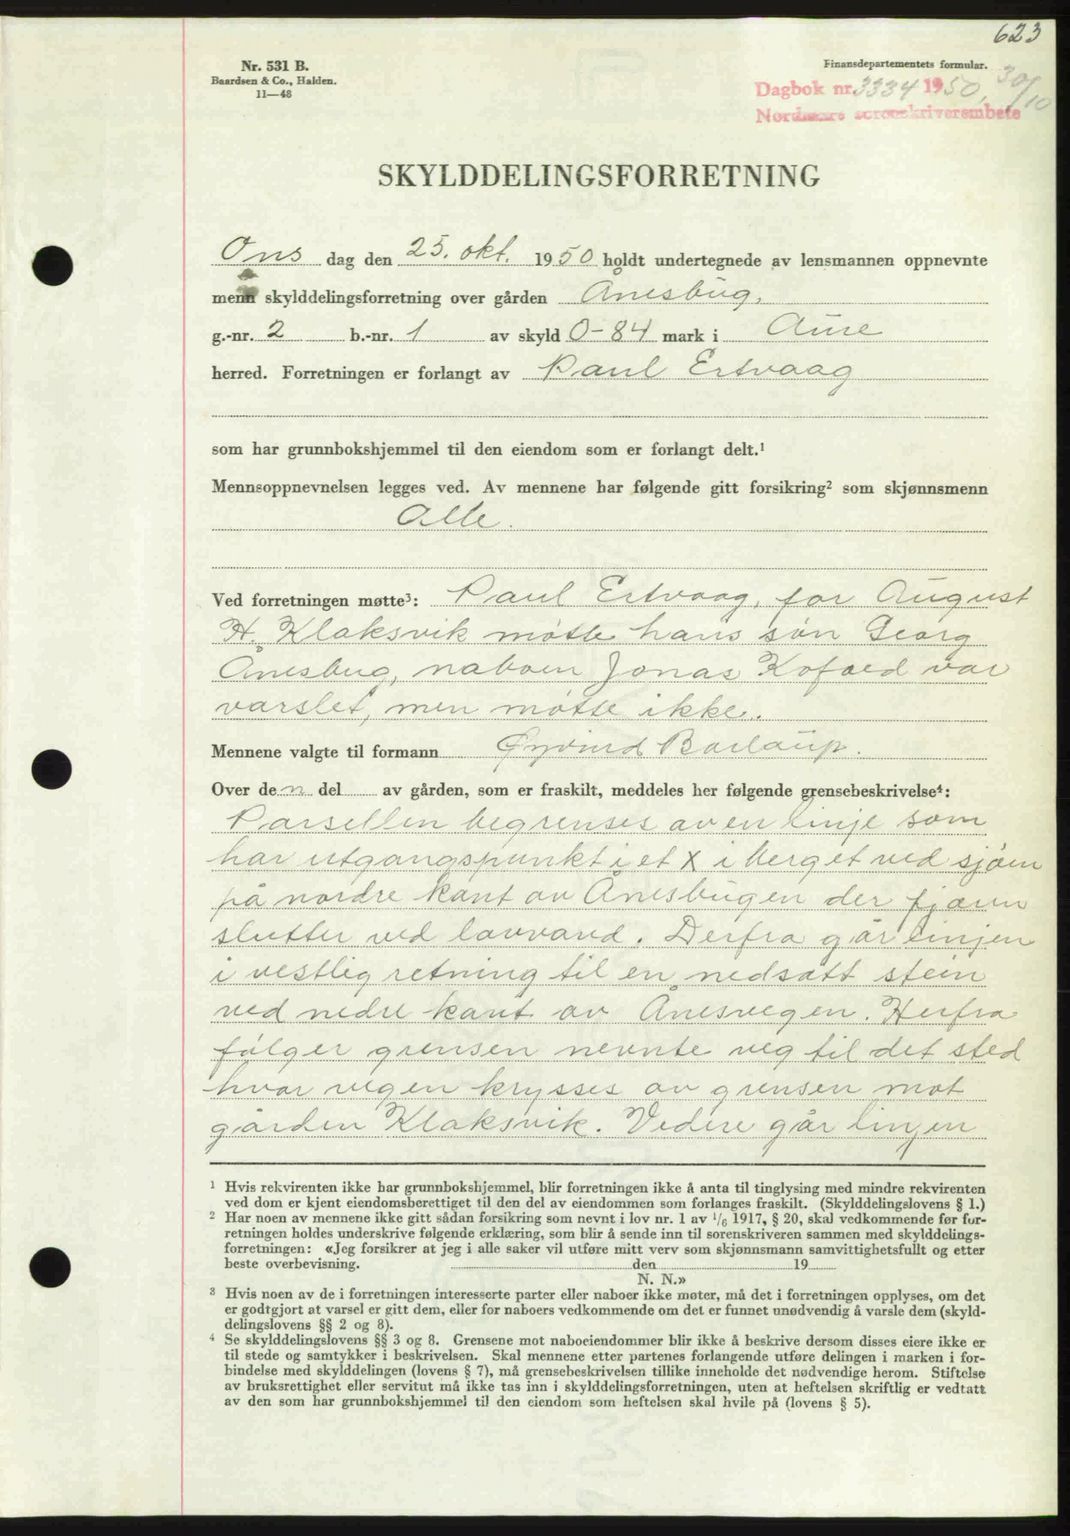 623
Nr. 531 B.
Baardsen & Co., Halden.
11—48
Finansdepartementets formular.
Dagbok nr. 3334 1950, 30/10
Nordmøre sorenskriverembete
SKYLDDELINGSFORRETNING
Ons dag den 25. okt. 1950 holdt undertegnede av lensmannen oppnevnte
menn skylddelingsforretning over gården Ånesbug,
g.-nr. 2 b.-nr. 1 av skyld 0-84 mark i Aure
herred. Forretningen er forlangt av Paul Ertvaag
som har grunnbokshjemmel til den eiendom som er forlangt delt.¹
Mennsoppnevnelsen legges ved. Av mennene har følgende gitt forsikring² som skjønnsmenn
Alle.
Ved forretningen møtte³: Paul Ertvaag, for August
H. Klaksvik møtte hans søn Georg
Ånesbug, naboen Jonas Kofoed var
varslet, men møtte ikke.
Mennene valgte til formann Øyvind Barlaup.
Over den del av gården, som er fraskilt, meddeles her følgende grensebeskrivelse⁴:
Parsellen begrenses av en linje som
har utgangspunkt i et X i berget ved sjøen
på nordre kant av Ånesbugen der fjæren
slutter ved lavvand. Derfra går linjen
i vestlig retning til en nedsatt stein
ved nedre kant av Ånesvegen. Herfra
følger grensen nevnte veg til det sted
hvor vegen krysses av grensen mot
gården Klaksvik. Videre går linjen
¹ Hvis rekvirenten ikke har grunnbokshjemmel, blir forretningen ikke å anta til tinglysing med mindre rekvirenten
ved dom er kjent eiendomsberettiget til den del av eiendommen som forlanges fraskilt. (Skylddelingslovens § 1.)
² Har noen av mennene ikke gitt sådan forsikring som nevnt i lov nr. 1 av 1/6 1917, § 20, skal vedkommende før for-
retningen holdes underskrive følgende erklæring, som blir å sende inn til sorenskriveren sammen med skylddelings-
forretningen: «Jeg forsikrer at jeg i alle saker vil utføre mitt verv som skjønnsmann samvittighetsfullt og etter
beste overbevisning. den 19
N. N.»
³ Hvis noen av de i forretningen interesserte parter eller naboer ikke møter, må det i forretningen opplyses, om det
er godtgjort at varsel er gitt dem, eller for naboers vedkommende om det er funnet unødvendig å varsle dem (skyld-
delingslovens §§ 2 og 8).
⁴ Se skylddelingslovens §§ 3 og 8. Grensene mot naboeiendommer blir ikke å beskrive dersom disses eiere ikke er
til stede og samtykker i beskrivelsen. Skal mennene etter partenes forlangende utføre delingen i marken i for-
bindelse med skylddelingen (lovens § 7), må grensebeskrivelsen tillike inneholde det nødvendige herom. Stiftelse
av bruksrettighet eller servitut må ikke tas inn i skylddelingsforretningen, uten at heftelsen skriftlig er vedtatt
av den som har grunnbokshjemmel til den eiendom som heftelsen skal hvile på (lovens § 5).